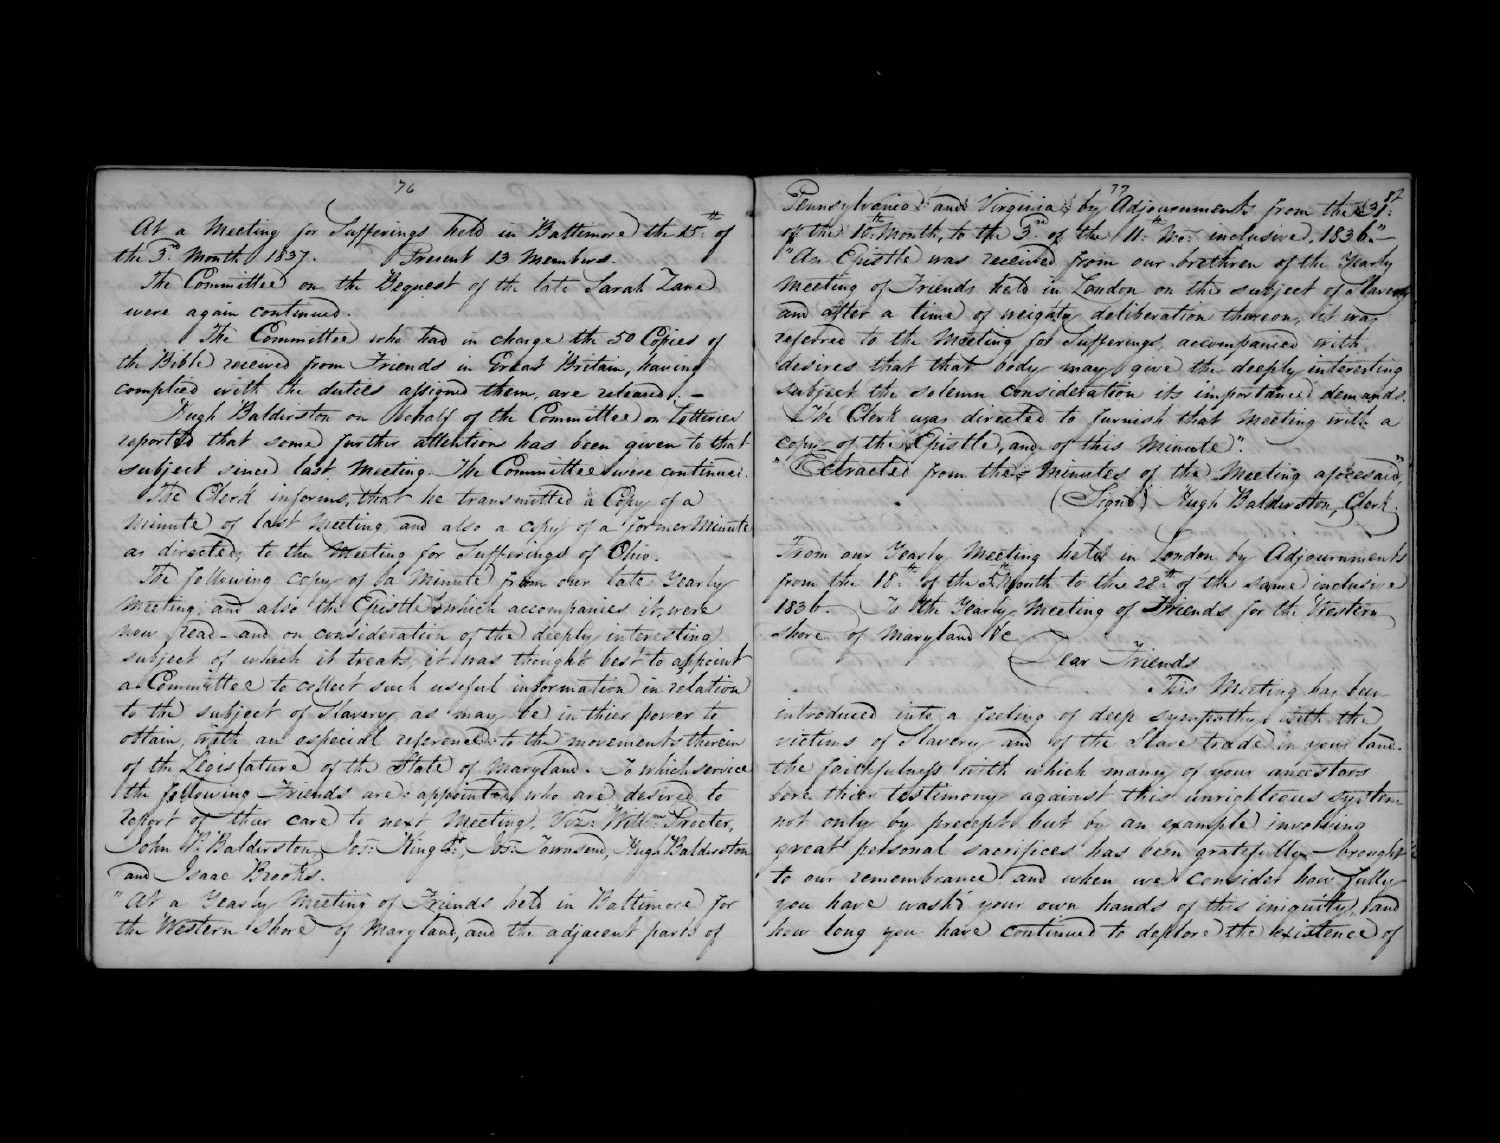 76
At a Meeting for Sufferings held in Baltimore the 15th of
the 3d Month 1837. Present 13 Members.
The Committee on the Bequest of the late Sarah Zane
were again continued.
The Committee who had in charge the 50 Copies of
the Bible received from Friends in Great Britain, having
complied with the duties assigned them, are released. –
Hugh Balderston on behalf of the Committee on Lotteries
reported that some further attention has been given to that
subject since last Meeting. The Committee were continued.
The Clerk informs, that he transmitted a Copy of a
Minute of last Meeting, and also a copy of a former Minute
as directed, to the Meeting for Sufferings of Ohio.
The following copy of a Minute from our late Yearly
Meeting, and also the Epistle which accompanies it, were
now read – and on consideration of the deeply interesting
subject of which it treats, it was thought best to appoint
a Committee to collect such useful information in relation
to the subject of Slavery, as may be in thier power to
obtain, with an especial reference to the movements therein
of the Legislature of the State of Maryland. To which service
the following Friends are appointed, who are desired to
report of their care to next Meeting, Viz: Willm Procter,
John P. Balderston, Jos: King Jr, Jos: Townsend, Hugh Balderston
and Isaac Brooks.
"At a Yearly Meeting of Friends held in Baltimore for
the Western Shore of Maryland, and the adjacent parts of
77
Pennsylvania and Virginia, by Adjournments from the 31st
of the 10th Month, to the 3rd of the 11th Mo: inclusive, 1836."–
"An Epistle was received from our brethren of the Yearly
Meeting of Friends held in London on the subject of slavery
and after a time of weighty deliberation thereon, it was
referred to the Meeting for Sufferings, accompanied with
desires that that body may give the deeply interesting
subject the solemn consideration its importance demands.
The Clerk was directed to furnish that Meeting with a
copy of the Epistle, and of this Minute".
"Extracted from the Minutes of the Meeting aforesaid,"
(Signd) Hugh Balderston, Clerk.
From our Yearly Meeting held in London by Adjournments
from the 18th of the 5th Month to the 28th of the same inclusive
1836. To the Yearly Meeting of Friends for the Western
shore of Maryland &c
Dear Friends
This Meeting has been
introduced into a feeling of deep sympathy with the
victims of Slavery and of the Slave trade in your land.
the faithfulness with which many of your ancestors
bore thier testimony against this unrighteous system
not only by precept but by an example involving
great personal sacrifices has been gratefully brought
to our remembrance and when we consider how fully
you have wash'd your own hands of this iniquity, and
how long you have continued to deplore the existence of